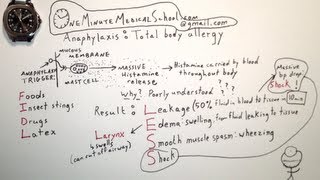 OneMinuteMedicalSchool.com
@gmail.com
Anaphylaxis = Total body allergy
MUCOUS
MEMBRANE
ANAPHYLAXIS
TRIGGER:
MAST CELL
MASSIVE
Histamine
release.
Why? Poorly understood
? ? ?
Histamine carried by blood
throughout body
Massive
bp drop
Shock
10min
Foods
Insect stings
Drugs
Latex
Result:
Leakage (50% fluid in blood to tissue in
Edema: swelling, from fluid leaking to tissue
Larynx
swells
(can cut off airway)
Smooth muscle spasm: wheezing
Shock